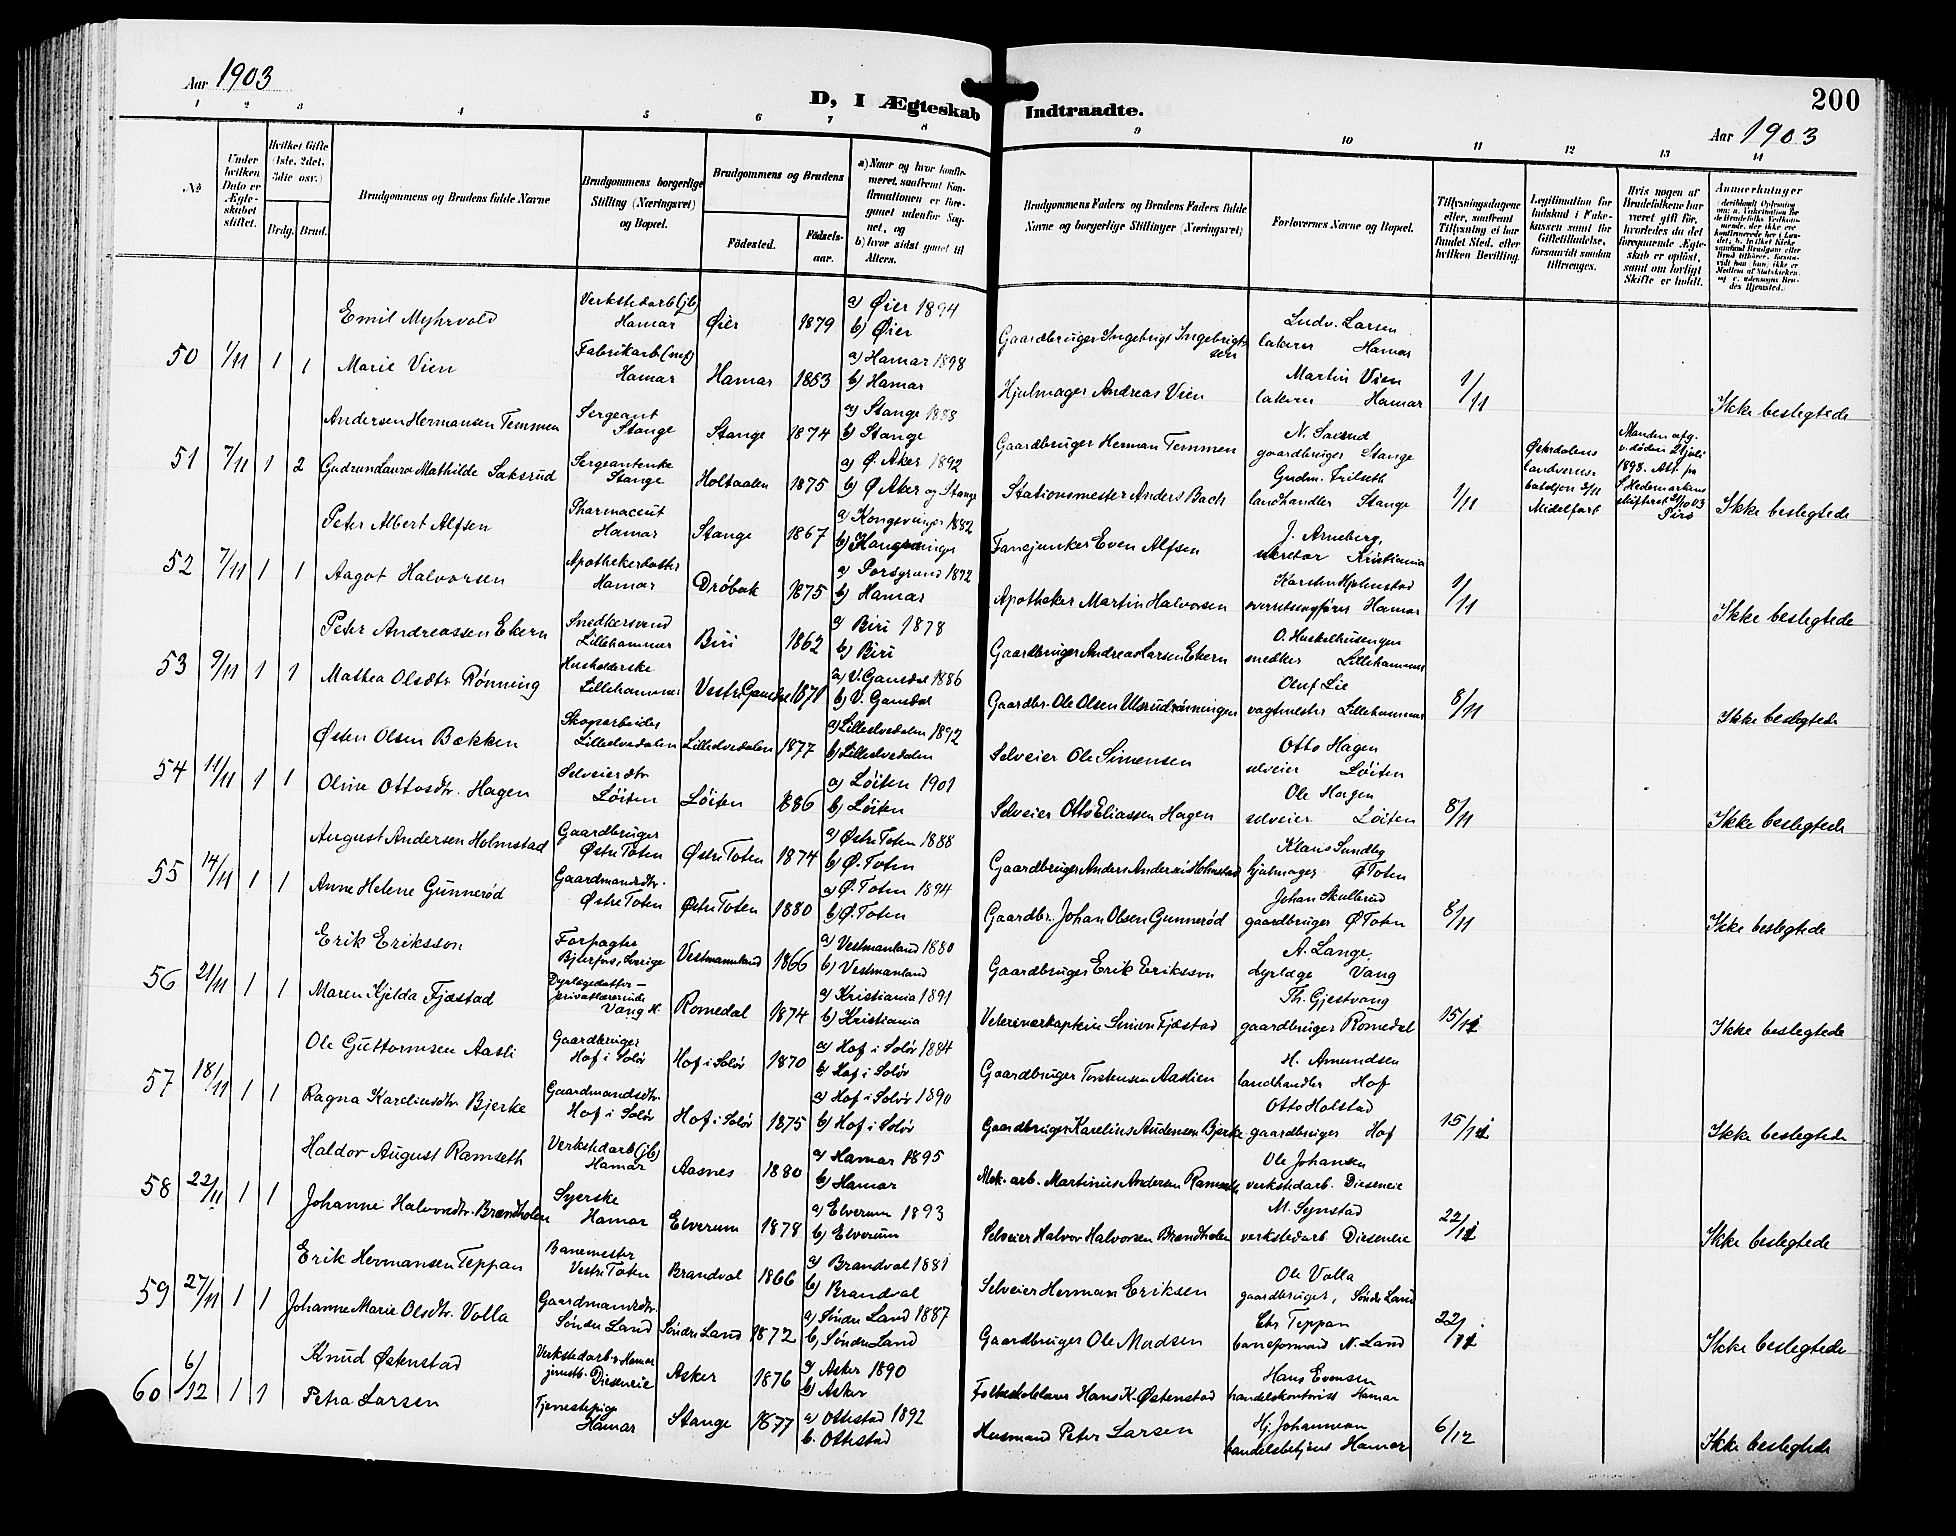 Aar 1903
D, I Ægteskab Indtraadte.
200
Aar 1903
1 2 3 4 5 6 7 8 9 10 11 12 13 14
No
Under hvilken Dato er Ægteskabet stiftet.
Hvilket Gifte (1ste, 2det, 3die osv.)
Brdg. Brud.
Brudgommens og Brudens fulde Navne
Brudgommens borgerlige Stilling (Næringsvei) og Bopæl.
Brudgommens og Brudens
Födested.
Födsels-aar.
a) Naar og hvor konfirmeret, samfremt Konfirmationen er foregaaet udenfor Sognet, og
b) hvor sidst gaaet til Alters.
Brudgommens Faders og Brudens Faders fulde Navne og borgerlige Stillinger (Næringsvei)
Forlovernes Navne og Bopæl.
Tillysningsdagene eller, samfremt Tillysning ei har fundet Sted, efter hvilken Bevilling.
Hvis nogen af Brudefolkene har været gift før, hvorledes da det foregaaende Ægteskab er opløst, samt om lovligt Skifte er holdt.
Anmærkninger
Emil Myhrvold Verkstedarb (jb) Hamar Øier 1879 a) Øier 1894 b) Øier Gaardbruger Ingebrigt Ingebrigtsen Ludv. Larsen lakerer Hamar
50 1/11 1 1 Marie Vien Fabrikarb Hamar Hamar a) Hamar 1898 b) Hamar Hjulmager Andreas Vien Martin Vien lakerer Hamar 1/11 Ikke beslegtede
Andersen Hermansen Temmen Sergeant Stange Stange 1874 a) Stange 1888 b) Stange Gaardbruger Herman Temmen gaardbruger Stange
51 7/11 1 2 Gudrun Laura Mathilde Saksrud Sergeantenke Stange Holtaalen 1875 a) Ø. Aker 1892 b) Ø Aker og Stange Stationsmester Anders Bach landhandler Stange 1/11 Østerdalens landverns-bataljon 3/11 Midelfart Ikke beslegtede
Peter Albert Alfsen Pharmaceut Hamar Stange 1867 a) Kongsvinger 1882 b) Kongsvinger Fanejunker Even Alfsen J. Arneberg, sekretær Kristiania
52 7/11 1 1 Aagot Halvorsen Apothekerdatter Hamar Dröbak 1875 a) Porsgrund 1892 b) Hamar Apotheker Martin Halvorsen Karsten Hjelmstad overretssagfører Hamar 1/11 Ikke beslegtede
Peter Andreassen Ekern Snedkersvend Lillehammer Biri 1862 a) Biri 1878 b) Biri Gaardbruger Andreas Larsen Ekern snedker Lillehammer
53 9/11 1 1 Mathea Olsdtr. Rönning Husholderske Lillehammer Vestre Gausdal 1871 a) V. Gausdal 1886 b) V. Gausdal Gaardbr. Ole Olsen Ulsrudrønningen Oluf Lie vagtmester Lillehammer 8/11 Ikke beslegtede
Østen Olsen Bækken Skogsarbeider Lilleelvedalen Lilleelvedalen 1877 a) Lilleelvedalen 1892 b) Lilleelvedalen Selveier Ole Simensen Otto Hagen selveier Löiten
54 11/11 1 1 Oline Ottosdtr. Hagen Selveierdtr Löiten Löiten 1886 a) Löiten 1901 b) Löiten Selveier Otto Eliassen Hagen Ole Hagen selveier Löiten 8/11 Ikke beslegtede
August Andersen Holmstad Gaardbruger Østre Toten Østre Toten 1874 a) Østre Toten 1888 b) Ø. Toten Gaardbruger Anders Andersen Holmstad Klaus Sundby hjulmager Ø Toten
55 14/11 1 1 Anne Helene Gunnerød Gaardmandsdtr. Østre Toten Østre Toten 1880 a) Ø. Toten 1894 b) Ø. Toten Gaardbr. Johan Olsen Gunnerød Johan Skullerud gaardbruger Ø Toten 8/11 Ikke beslegtede
Erik Eriksson Forpagter Bjurfors, Sverige Vestmannland 1866 a) Vestmanland 1880 b) Vestmanland Gaardbruger Erik Eriksson A. Lange, dyrlæge Vang
56 21/11 1 1 Maren Kjelda Fjæstad Dyrlægedatter - privatlærerinde Vang H. Romedal 1874 a) Kristiania 1891 b) Kristiania Veterinærkaptein Simen Fjæstad Th. Gjestvang gaardbruger Romedal 15/11 Ikke beslegtede
Ole Guttormsen Aasli Gaardbruger Hof i Solör Hof i Solör 1870 a) Hof i Solör 1884 b) Hof i Solör Gaardbruger Torstensen Aaslien H. Amundsen landhandler Hof
57 18/11 1 1 Ragna Karelinsdtr Bjerke Gaardmandsdtr. Hof i Solör Hof i Solör 1875 a) Hof i Solör 1890 b) Hof i Solör Gaardbruger Karelius Andersen Bjerke Otto Holstad gaardbruger Hof 15/11 Ikke beslegtede
Haldor August Ramseth Verkstedarb (jb) Hamar Aasnes 1880 a) Hamar 1895 b) Hamar Mek. arb. Martinius Andersen Ramseth Ole Johansen verkstedarb. Disenerie
58 22/11 1 1 Johanne Halvorsdtr. Brændholen Syerske Hamar Elverum 1878 a) Elverum 1893 b) Elverum Selveier Halvor Halvorsen Brændholen M. Synstad verkstedarb Disenerie 22/11 Ikke beslegtede
Erik Hermansen Teppan Banemester Vestre Toten Brandval 1866 a) Brandval 1881 b) Brandval Selveier Herman Eriksen Ole Volla gaardbruger, Søndre Land
59 27/11 1 1 Johanne Marie Olsdtr. Volla Gaardmandsdtr. Søndre Land Søndre Land 1872 a) Søndre Land 1887 b) Søndre Land Gaardbruger Ole Madsen Chr Teppan baneformand N. Land 22/11 Ikke beslegtede
Knud Østenstad Verkstedarb. v. Hamar jernstb. Disenerie Asker 1876 a) Asker 1890 b) Asker Folkeskolelærer Hans K. Østenstad Hans Evensen handelskontorist Hamar
60 6/12 1 1 Petra Larsen Tjenestepige Hamar Stange 1877 a) Ottestad 1892 b. Ottestad Husmand Peter Larsen Hj. Johannesen handelsbetjent Hamar 6/12 Ikke beslegtede